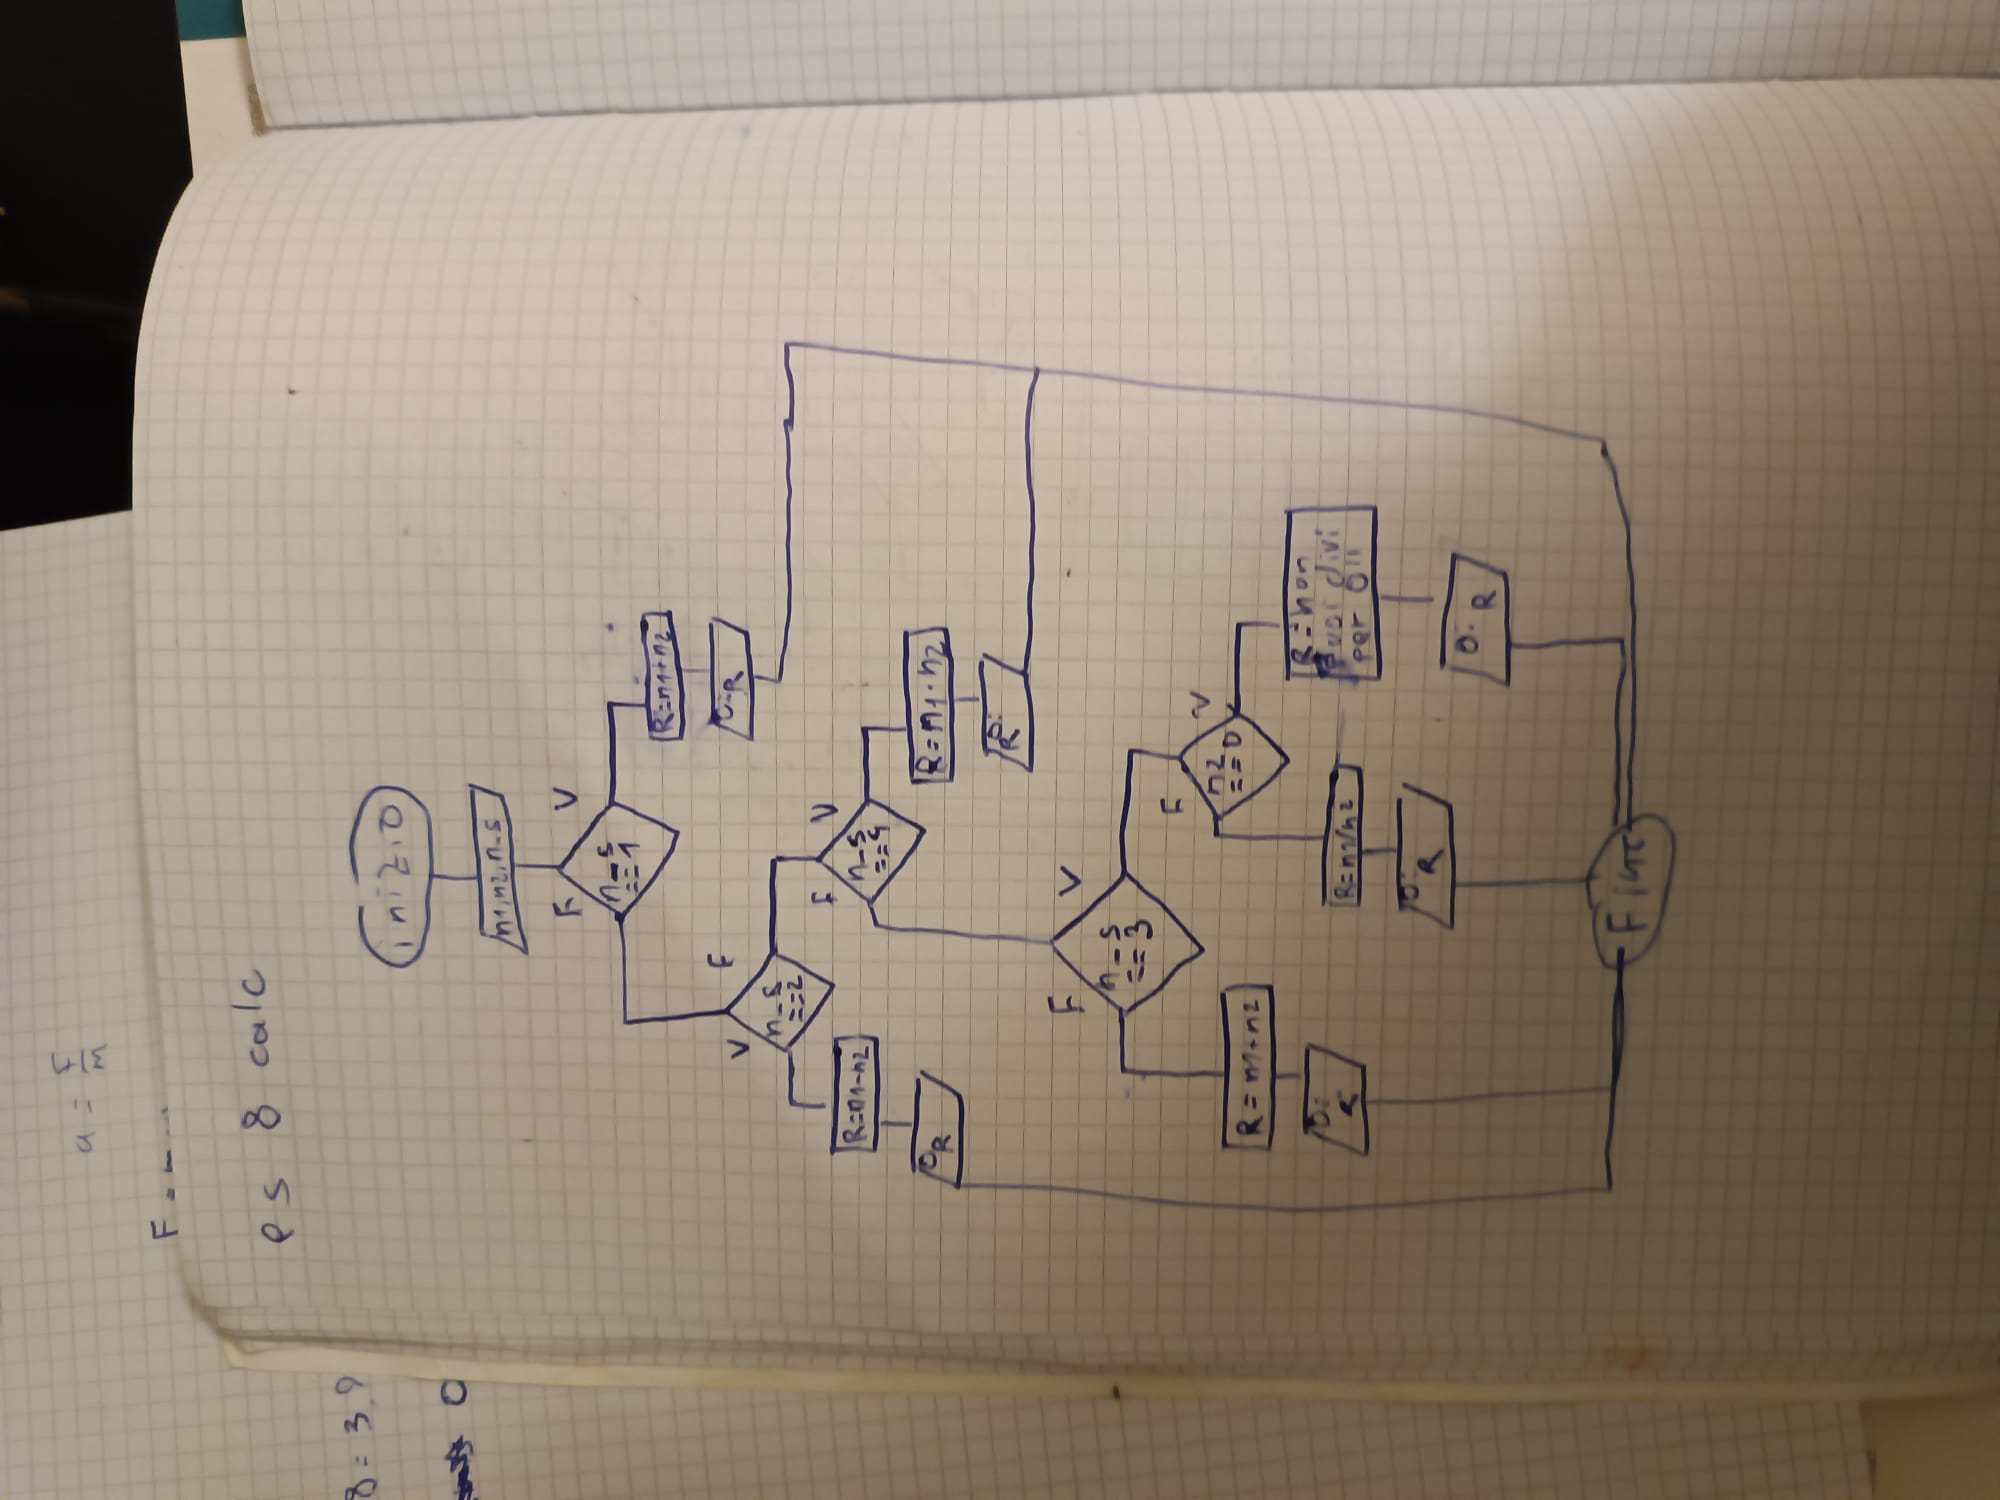 es 8 calc
inizio
n1, n2, n-s
F
V
n-s
==1
R=n1+n2
O: R
V
F
n-s
==2
R=n1-n2
O R
F
V
n-s
==4
R=n1·n2
O:
R
F
V
n-s
==3
R=n1+n2
O:
R
F
V
n2
==0
R=n1/n2
O:
R
R=non
puoi divi
per 0"
O:
R
Fine
a = F/m
8=3,9
0